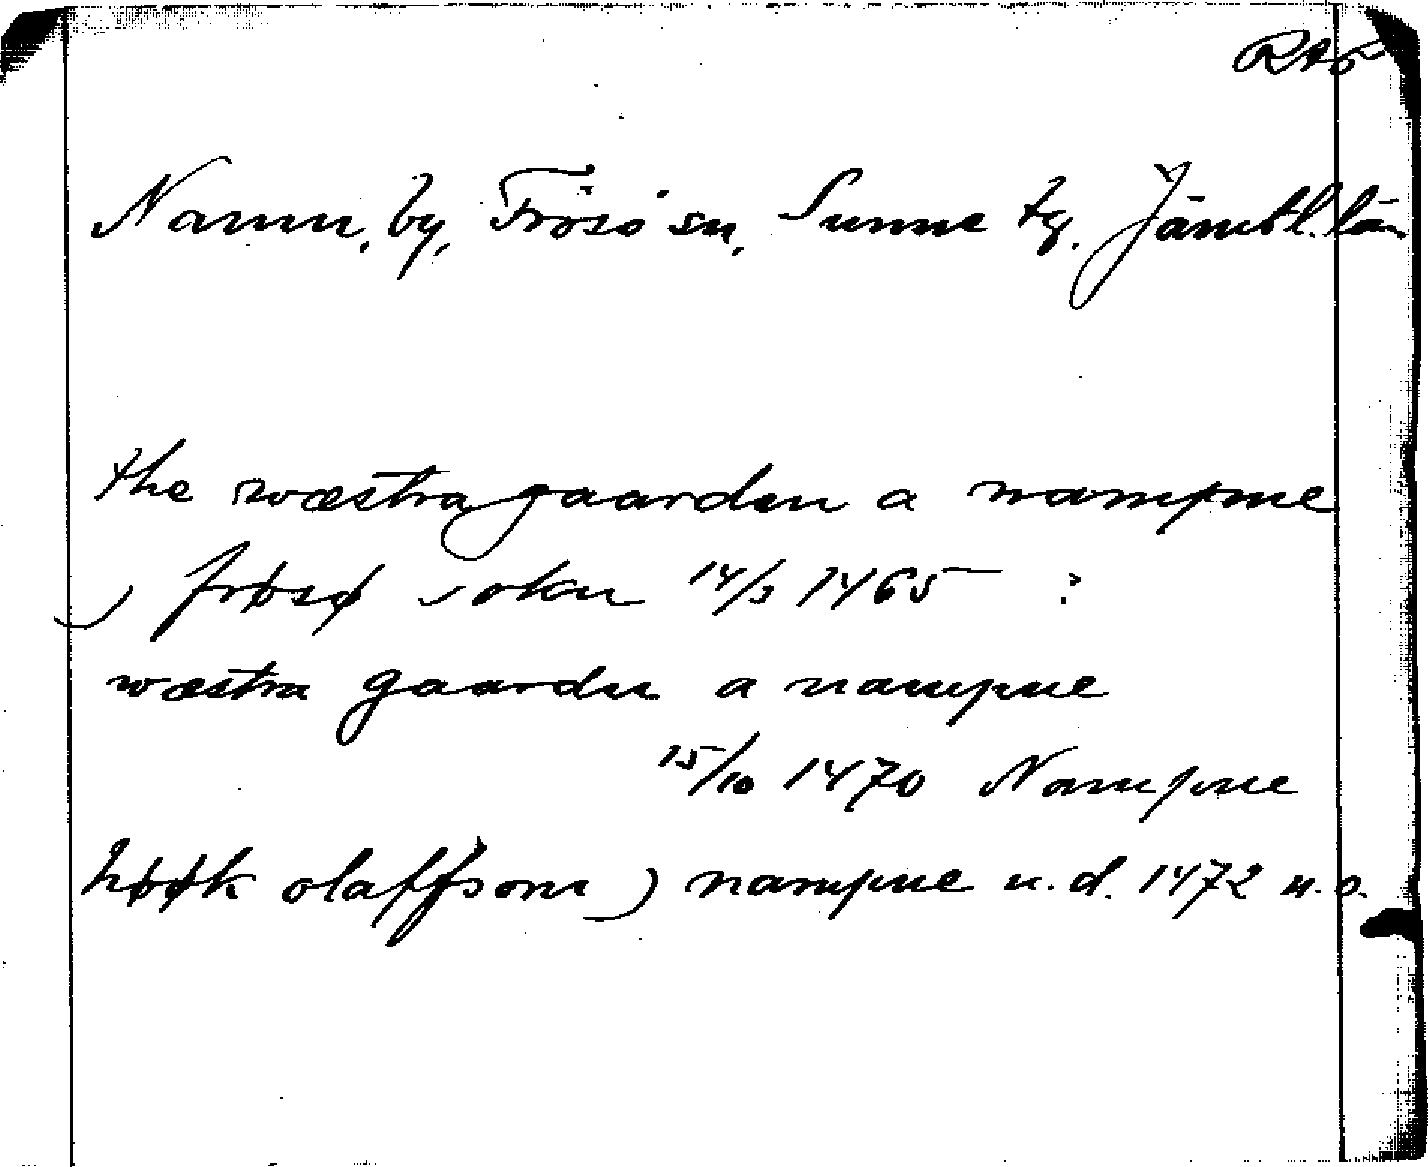 RAP
Namn, by, Frösö sn, Sunne tg. Jämtl. län
the wæstra gaarden a nampne
j frøsø sokn 14/3 1465 :
wæstra gaarden a nampne
15/10 1470 Nampne
høøk olaffsom) nampne u.d. 1472 u.o.